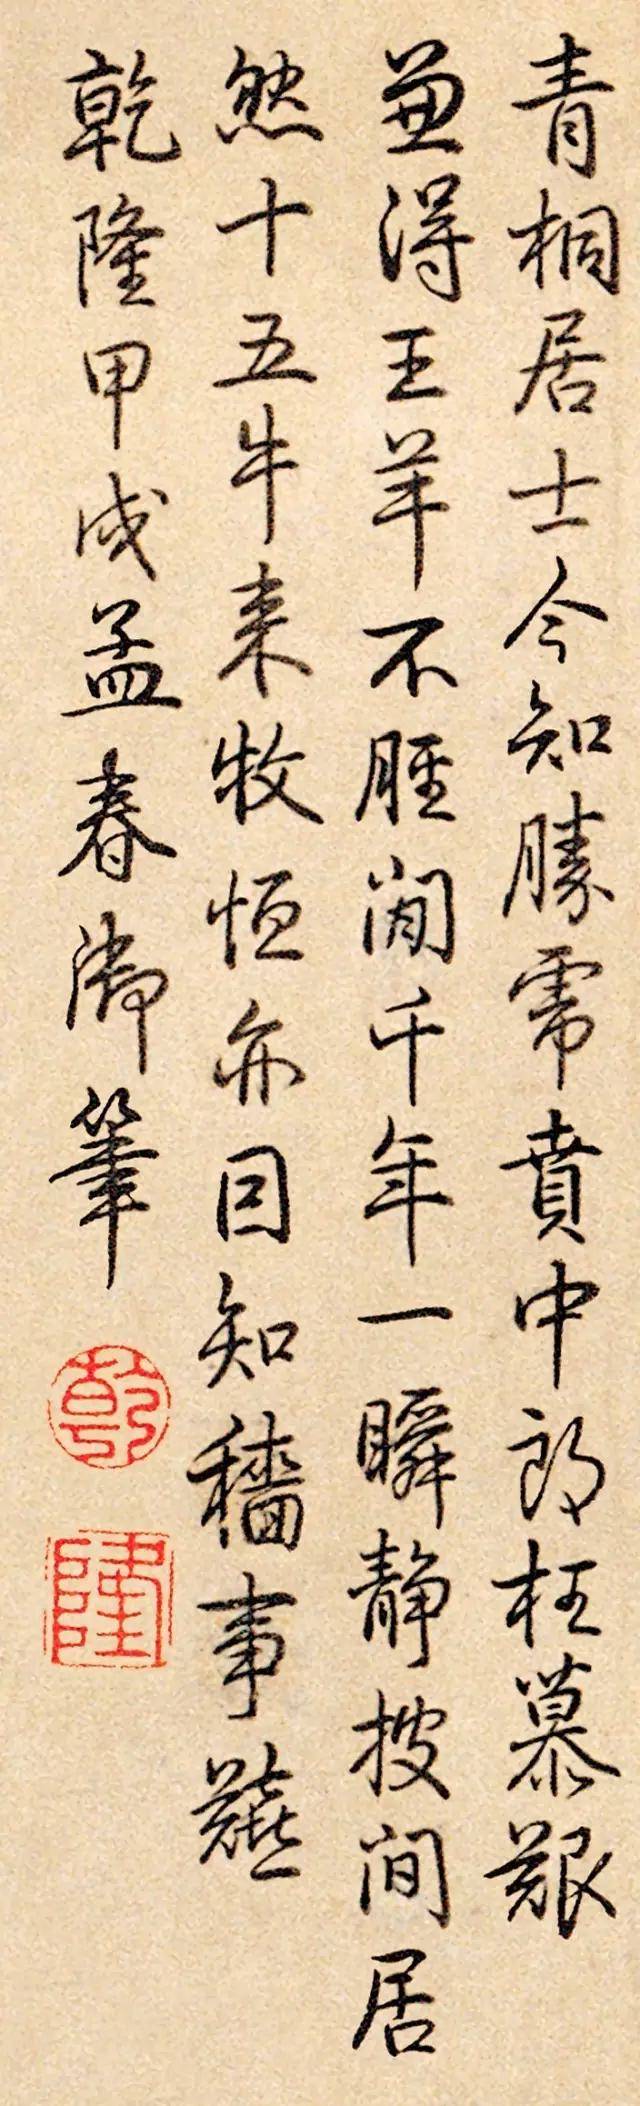 青桐居士今知勝虎賁中郎枉慕艱
兼得王羊不脛閒千年一瞬靜披間居
然十五牛来牧恒亦因知穡事囏
乾隆甲戌孟春御筆
乾
隆